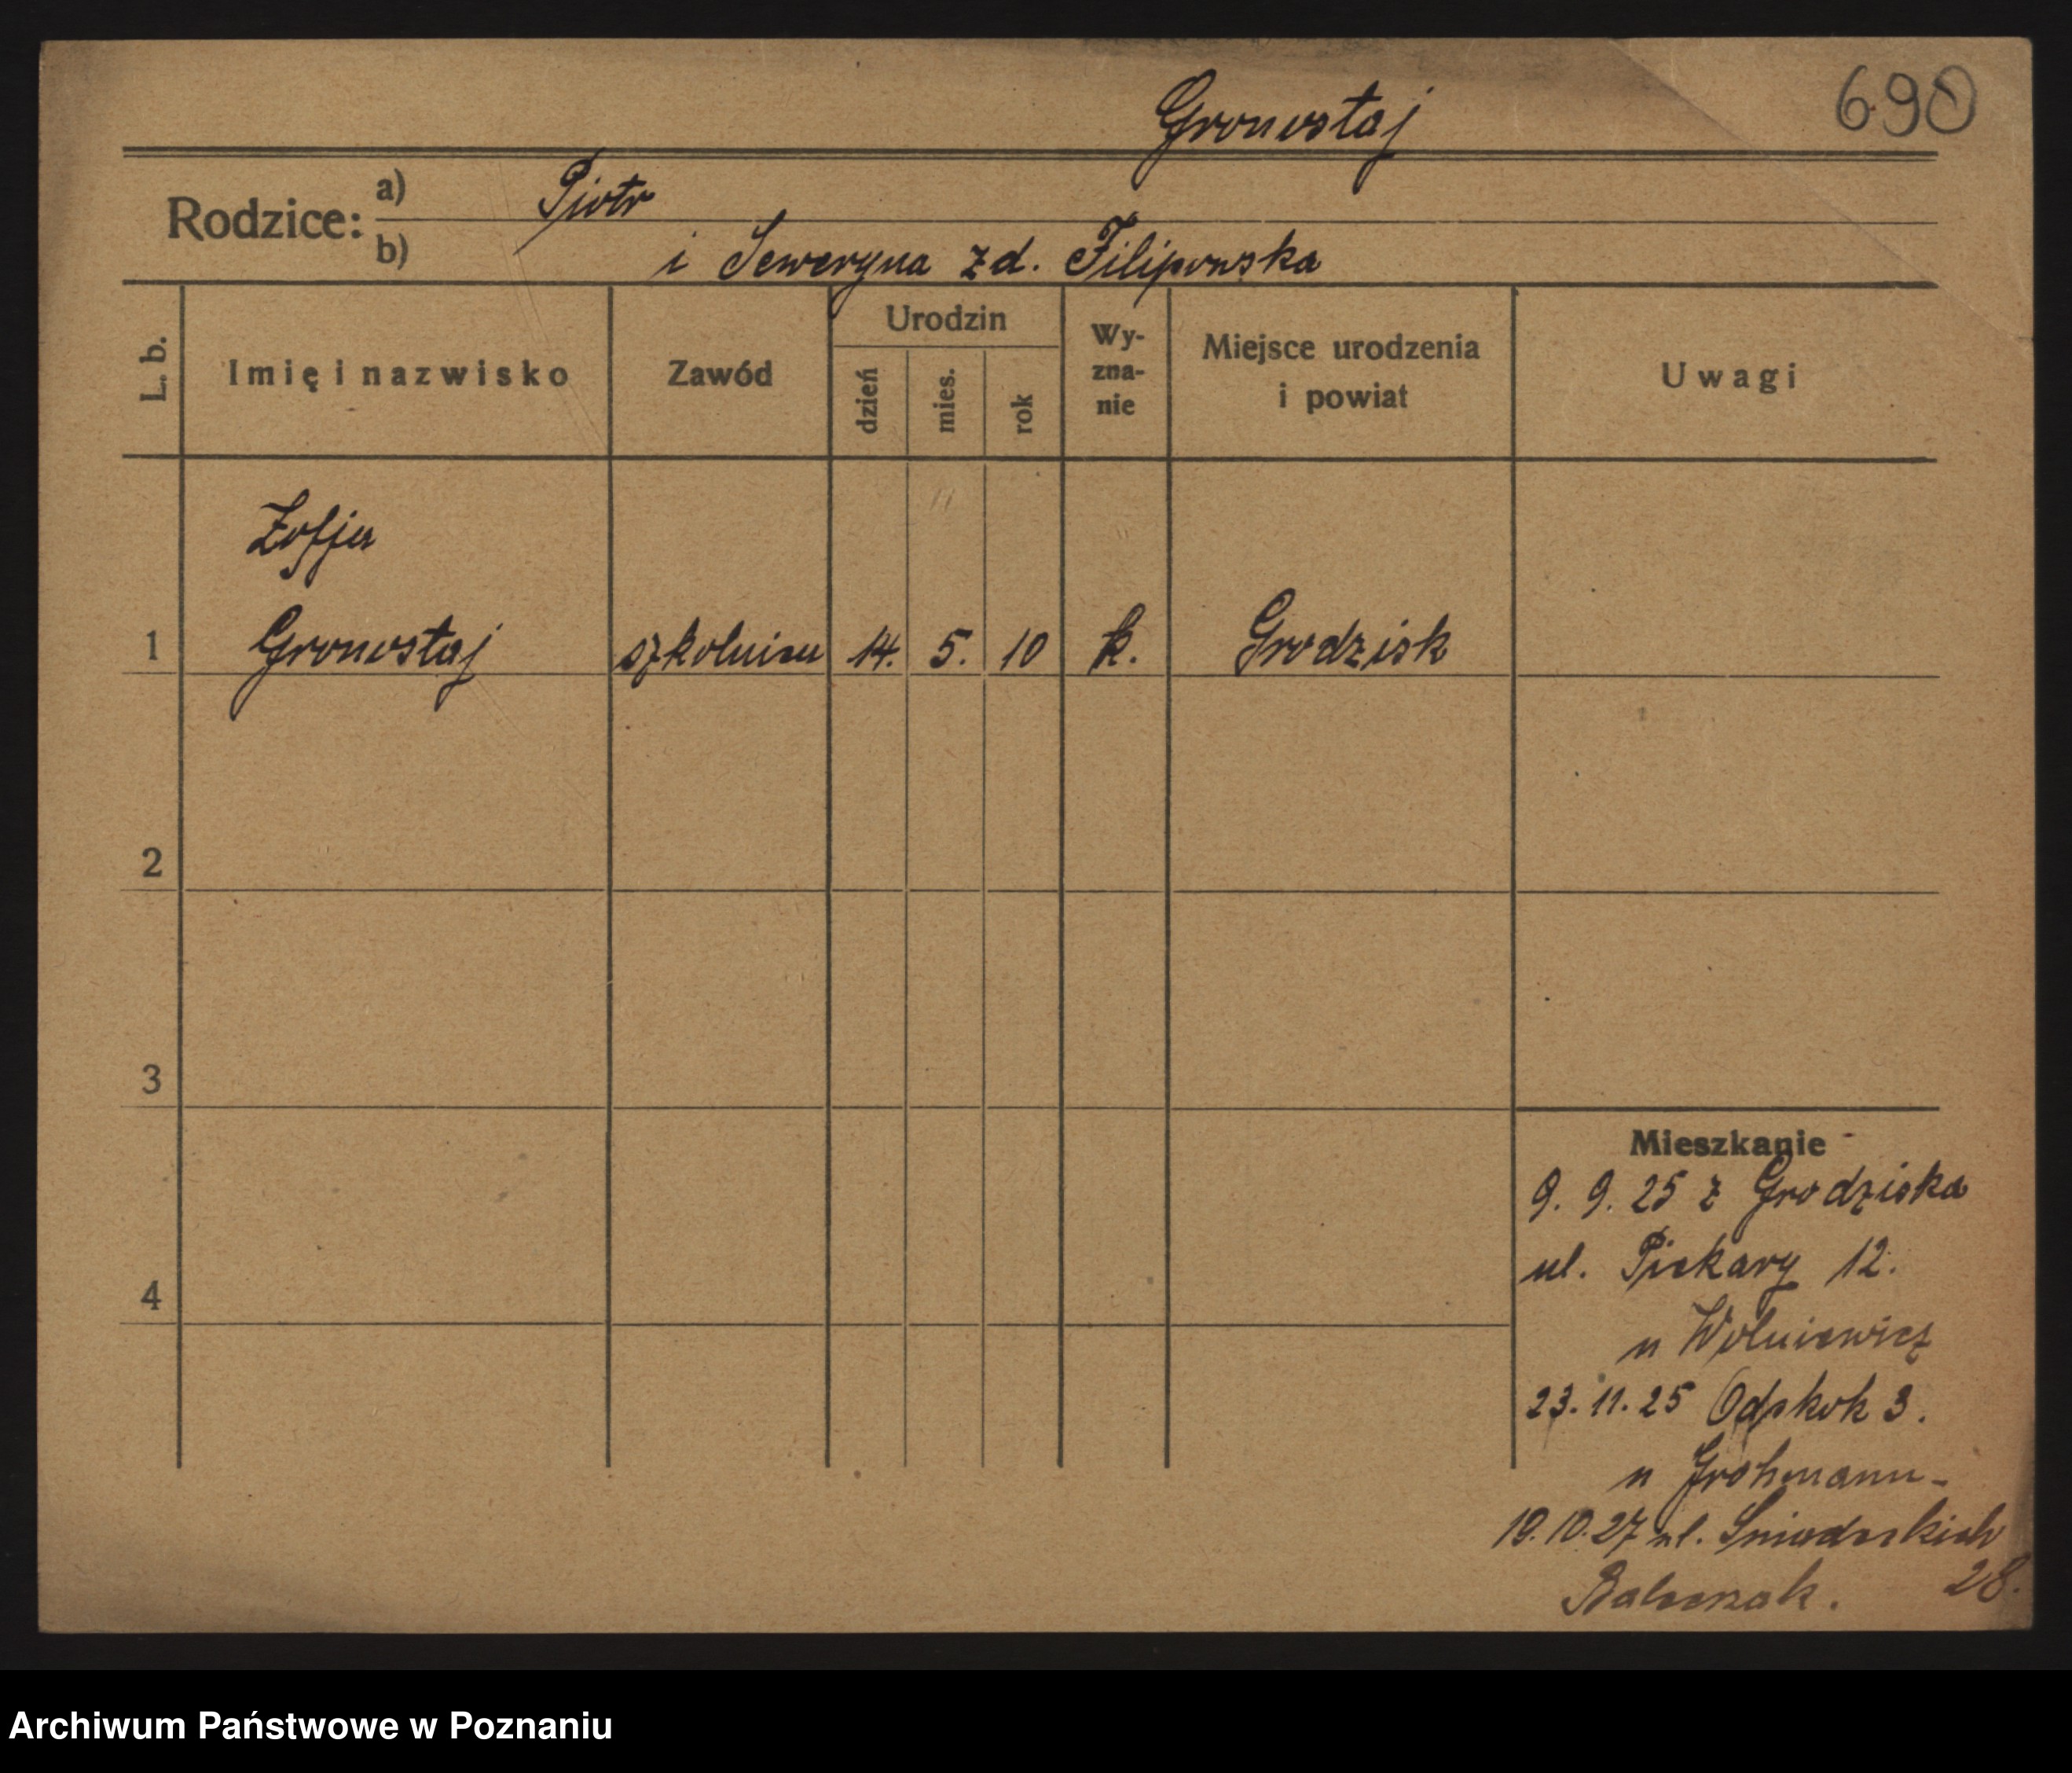 690
Gronostaj
Rodzice: a) Piotr
b) i Seweryna zd. Filipowska
L. b. Imię i nazwisko Zawód Urodzin dzień mies. rok Wy-zna-nie Miejsce urodzenia i powiat Uwagi
Zofja
1 Gronostaj szkolnica 14. 5. 10 k. Grodzisk
2
3
Mieszkanie
9. 9. 25 z Grodziska
ul. Piekary 12.
4
u Wolniewicz
23. 11. 25 Odskok 3.
u Grohmann-
19. 10. 27 ul. Sniadeckich
28.
Archiwum Państwowe w Poznaniu